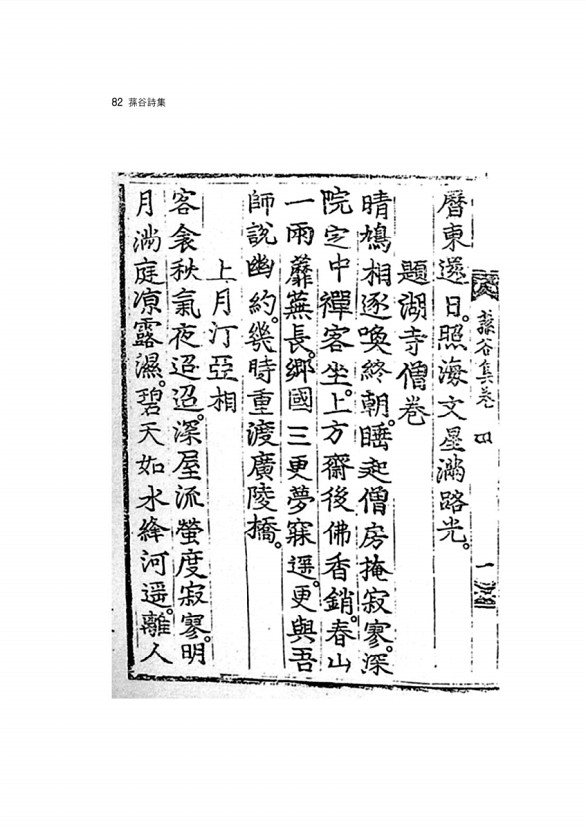 82 蓀谷詩集
蓀谷集卷四 一
曆東還日。照海文星滿路光。
題湖寺僧卷
晴鳩相逐喚終朝。睡起僧房掩寂寥。深
院定中禪客坐。上方齋後佛香銷。春山
一雨蘼蕪長。鄕國三更夢寐遥。更與吾
師說幽約。幾時重渡廣陵橋。
上月汀亞相
客衾秋氣夜迢迢。深屋流螢度寂寥。明
月滿庭凉露濕。碧天如水絳河遥。離人